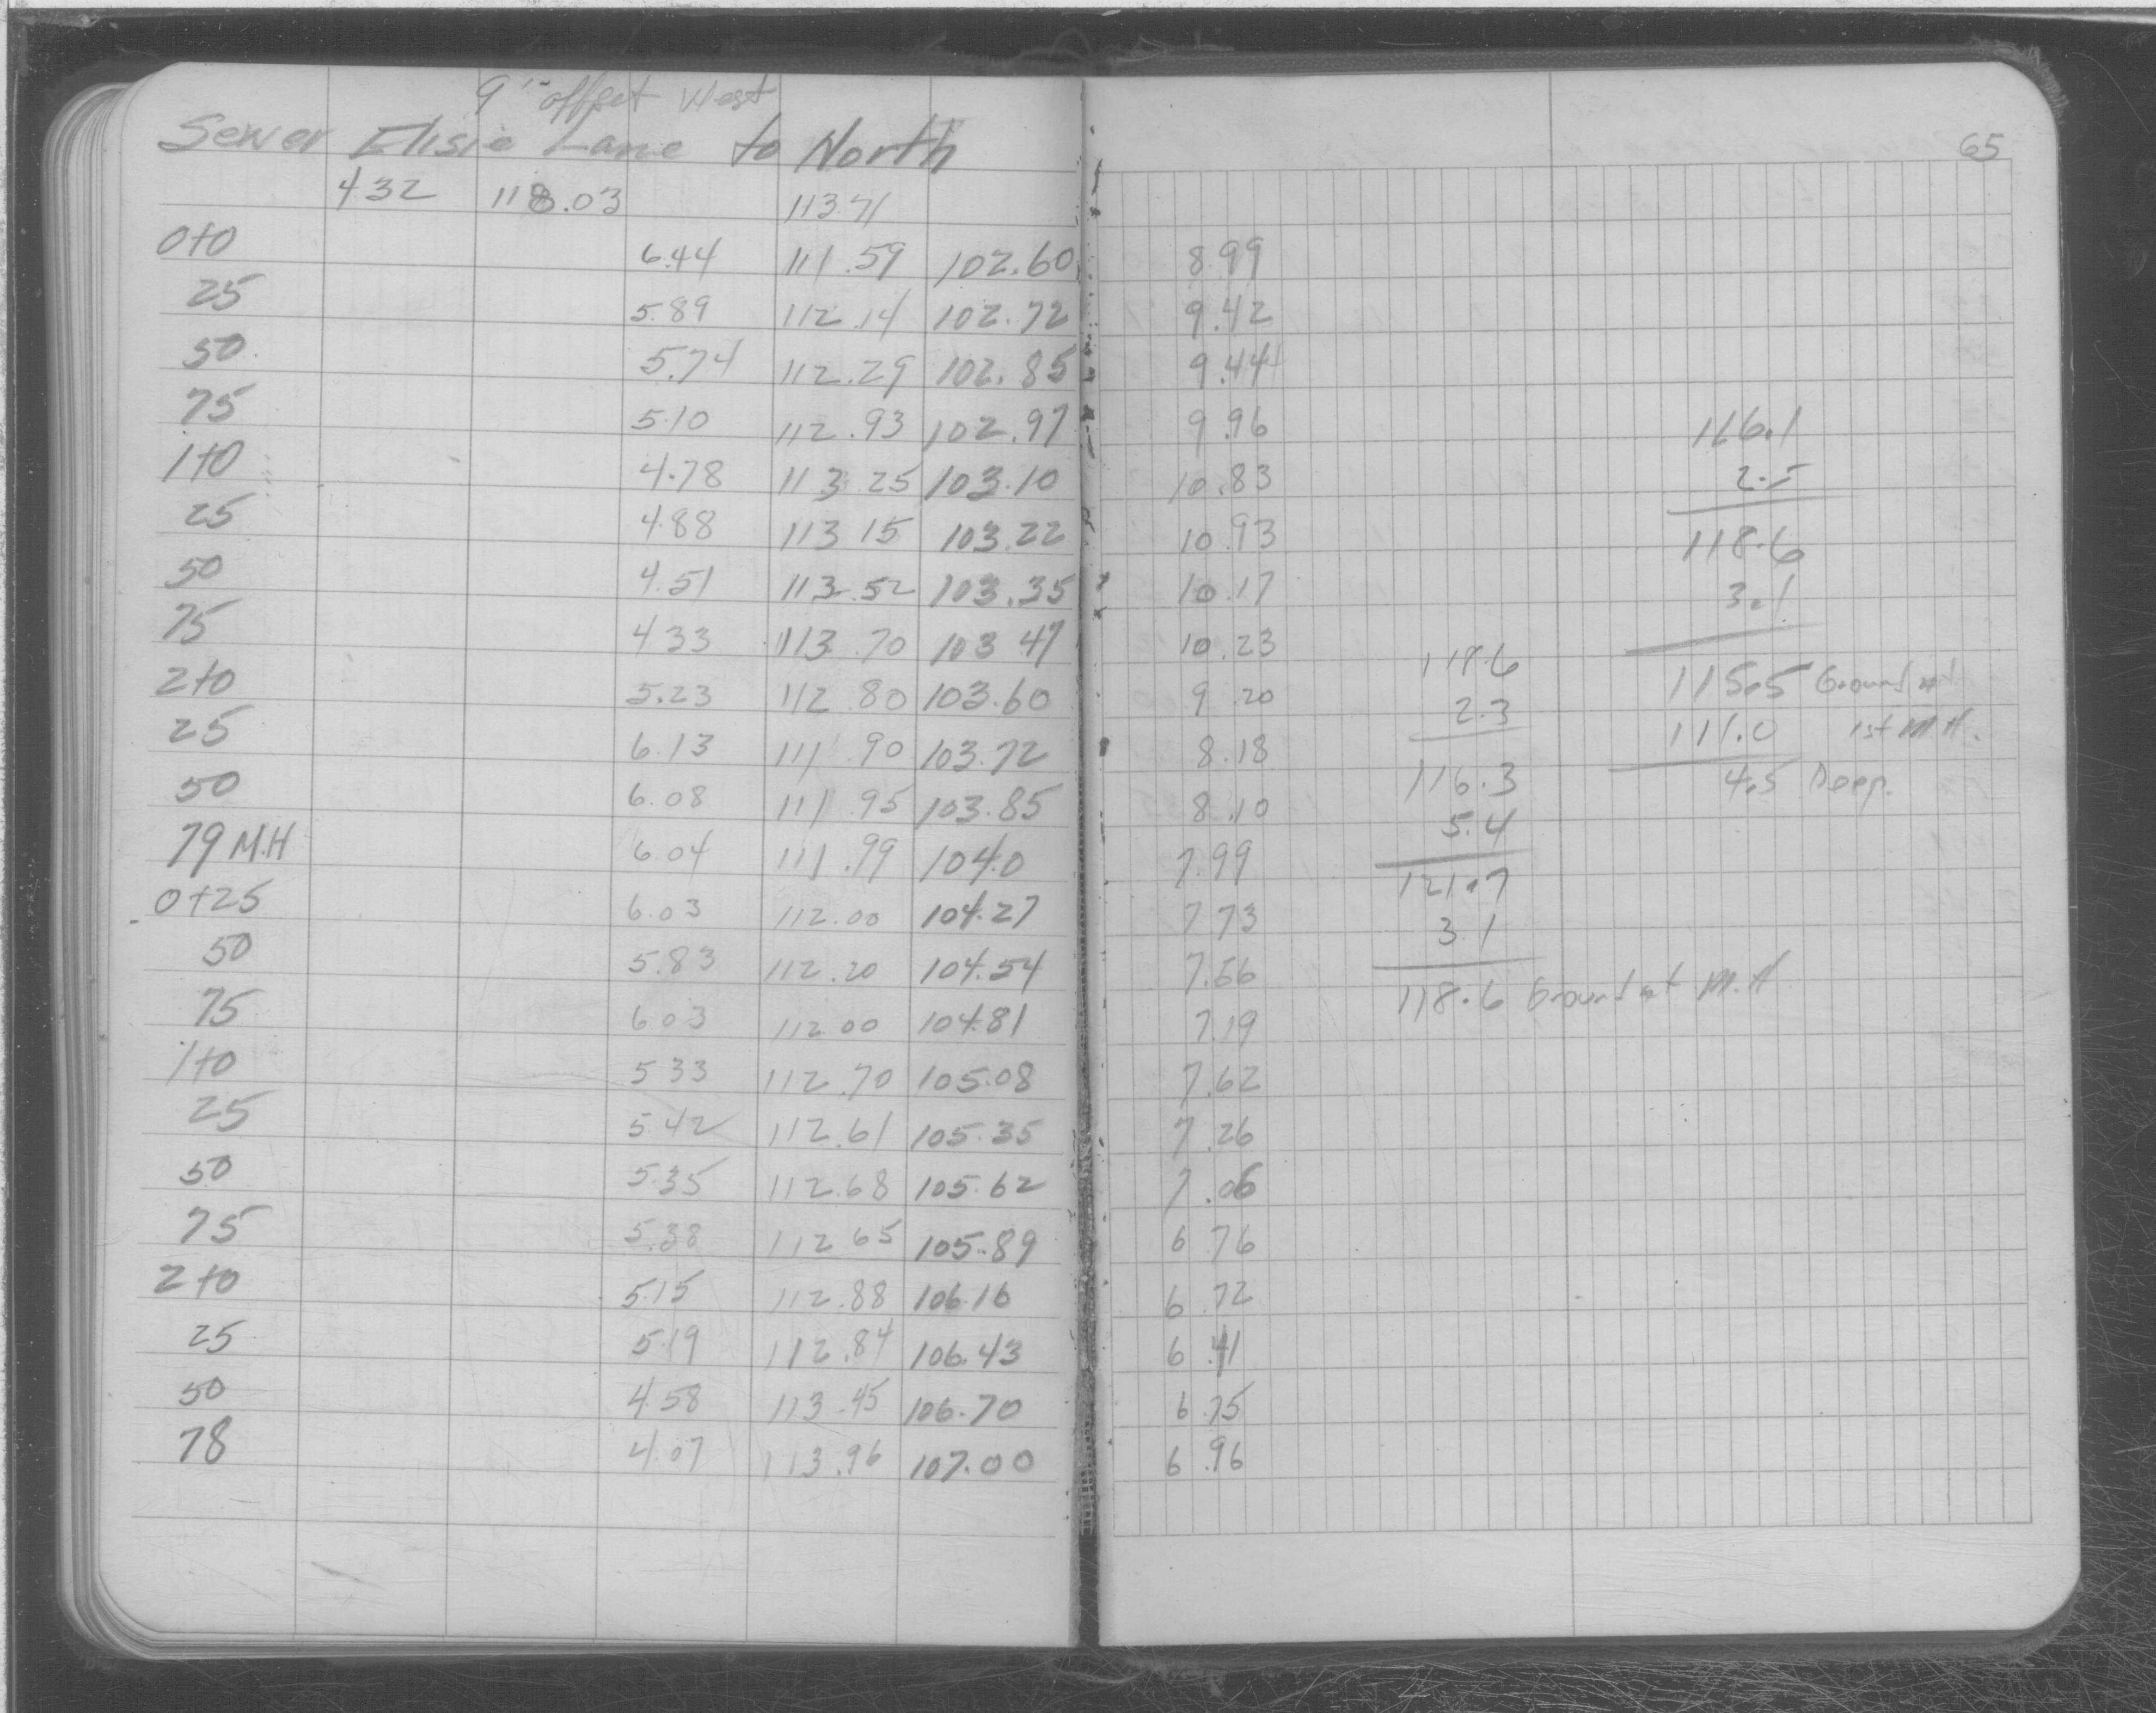 9' offset West
Sewer Elisie Lane to North
65
4.32 118.03 113.71
0+0 6.44 111.59 102.60 8.99
25 5.89 112.14 102.72 9.42
50 5.74 112.29 102.85 9.44
75 5.10 112.93 102.97 9.96
1+0 4.78 113.25 103.10 10.83
25 4.88 113.15 103.22 10.93
50 4.51 113.52 103.35 10.17
75 4.33 113.70 103.47 10.23
2+0 5.23 112.80 103.60 9.20
25 6.13 111.90 103.72 8.18
50 6.08 111.95 103.85 8.10
79 M.H 6.04 111.99 104.0 7.99
0+25 6.03 112.00 104.27 7.73
50 5.83 112.20 104.54 7.66
75 6.03 112.00 104.81 7.19
1+0 5.33 112.70 105.08 7.62
25 5.42 112.61 105.35 7.26
50 5.35 112.68 105.62 7.06
75 5.38 112.65 105.89 6.76
2+0 5.15 112.88 106.16 6.72
25 5.19 112.84 106.43 6.41
50 4.58 113.45 106.70 6.75
78 4.07 113.96 107.00 6.96
118.6
2.3
116.3
5.4
121.7
3.1
118.6 Ground at M.H
116.1
2.5
118.6
3.1
115.5 Ground at
111.0 1st M.H.
4.5 Deep.